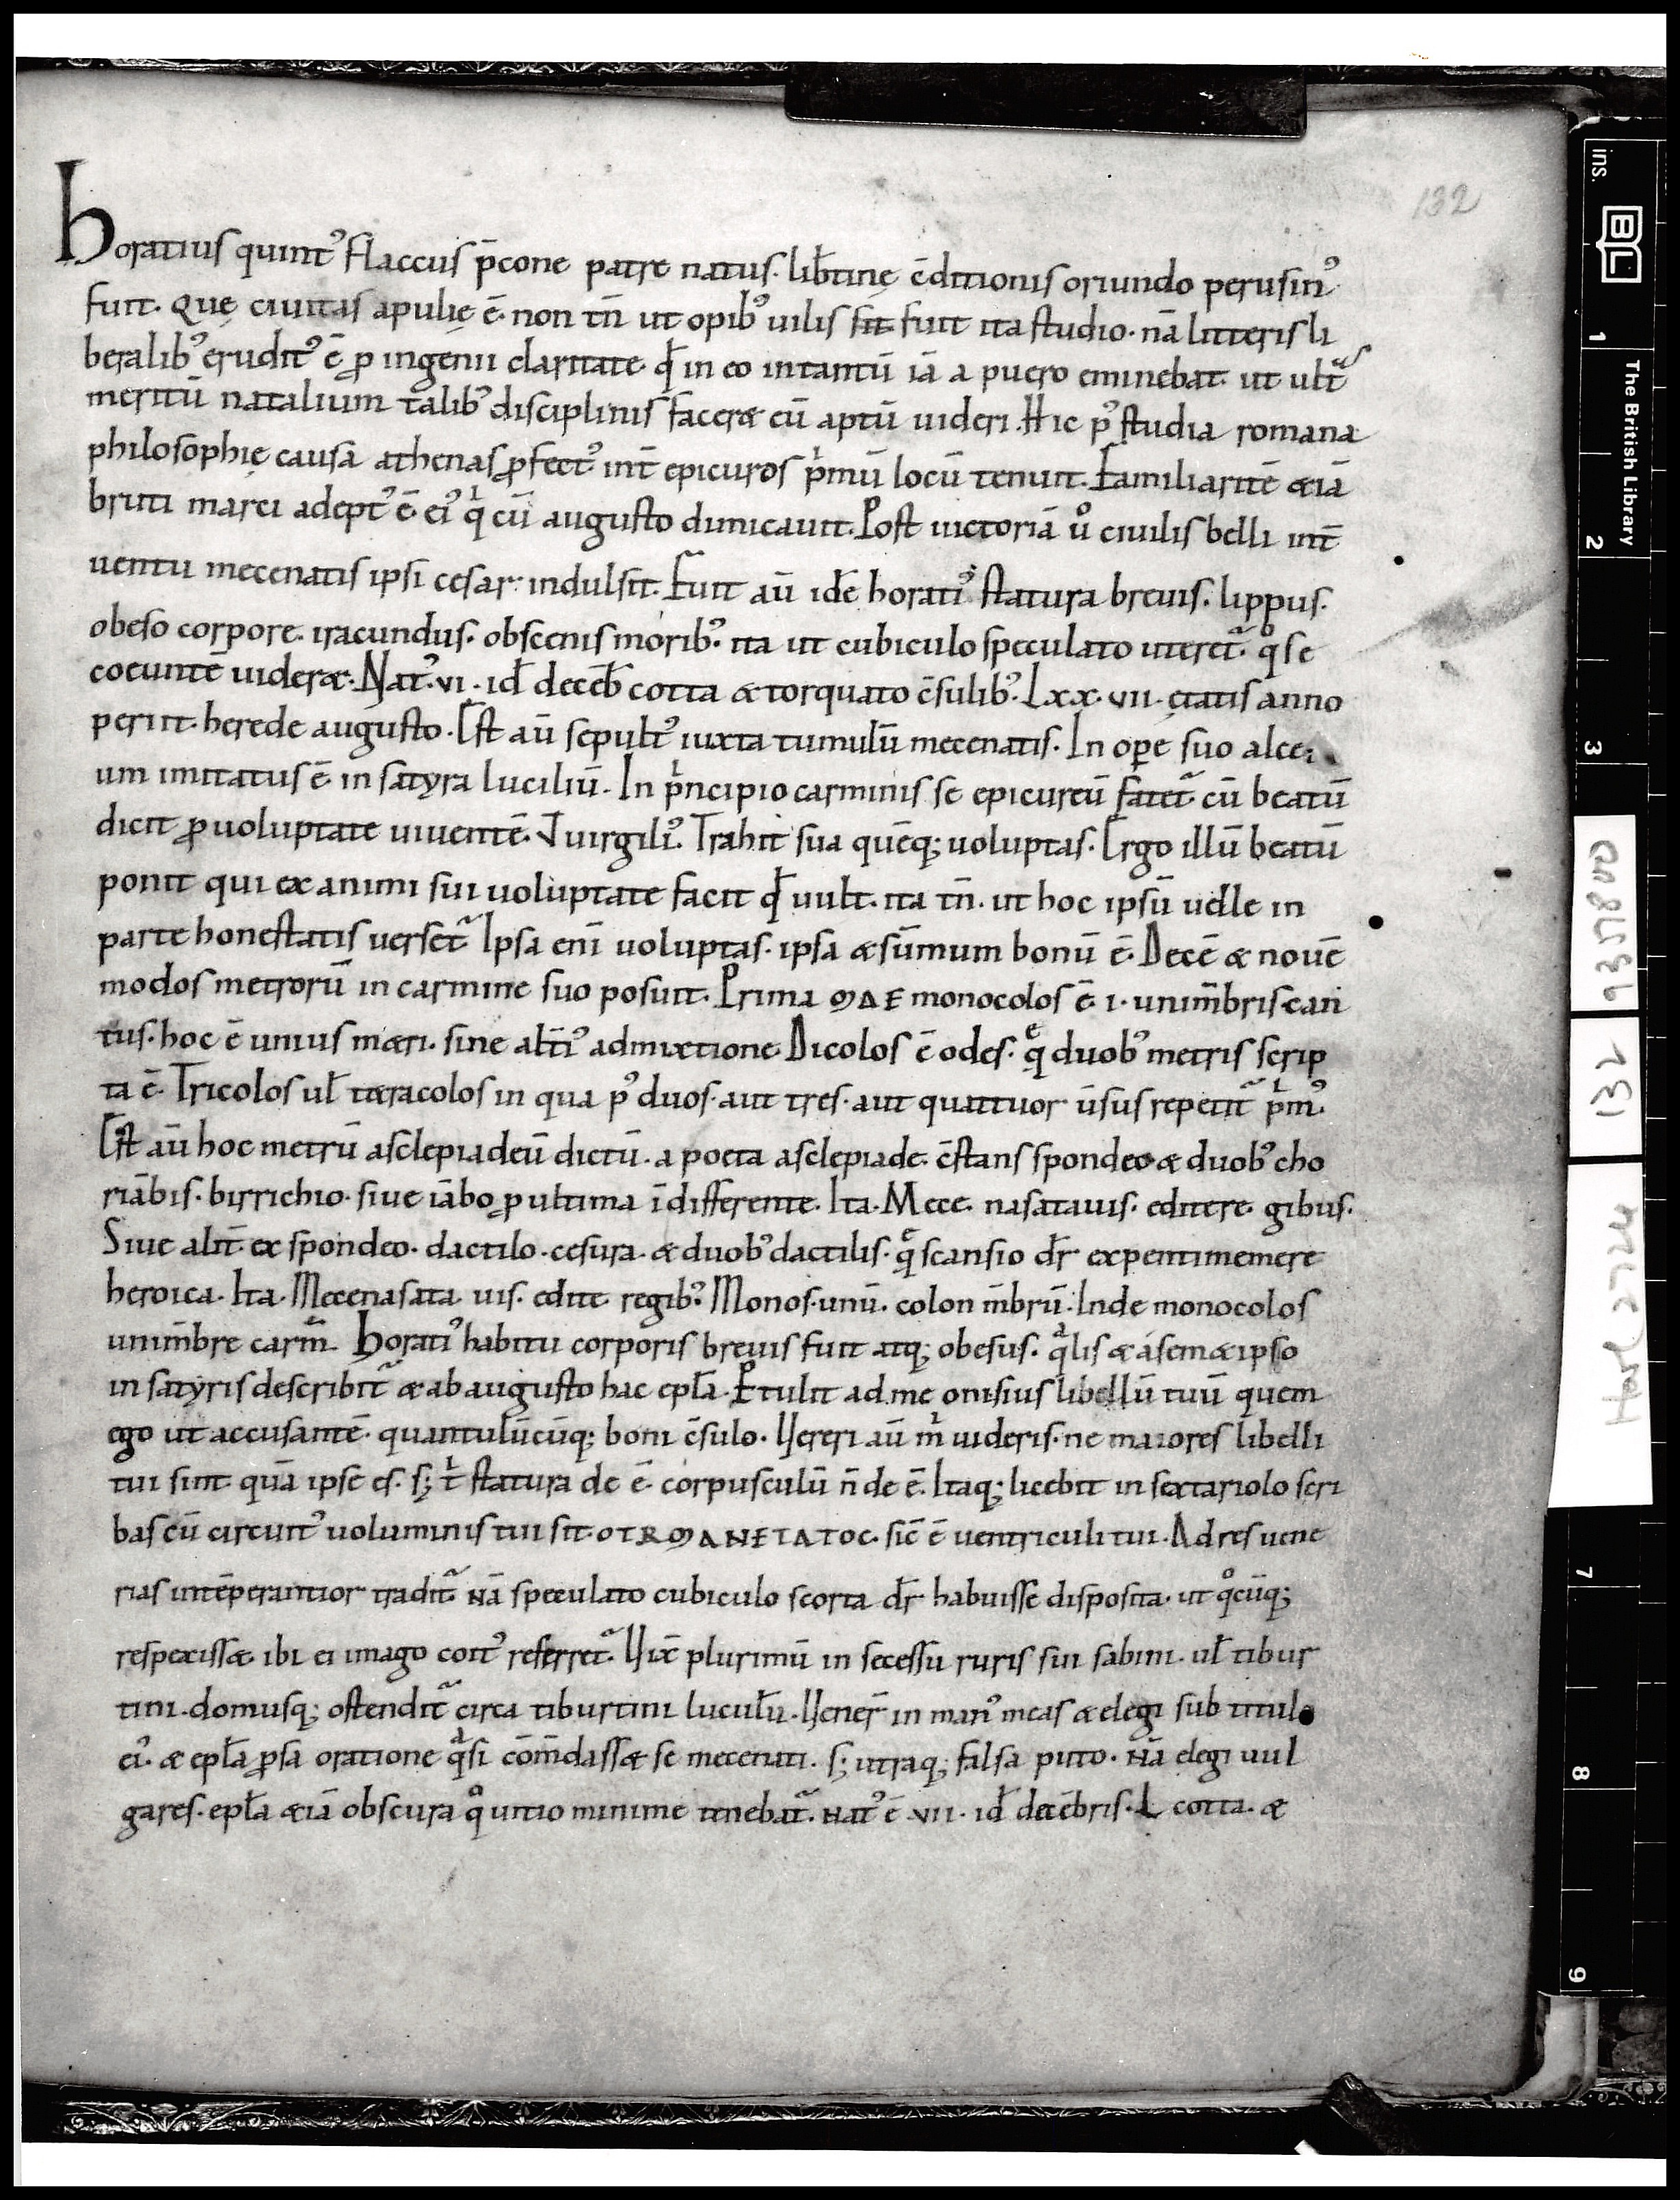 132
Horatius quint᾽ flaccus p̄cone patre natus. lib̄tinę c̄ditionis oriundo perusin᾽
fuit. Quę ciuitas apulię ē. non tn̄ ut opib᾽ uilis sit fuit ita studio. nā litteris li
beralib᾽ erudit᾽ ē ꝓ ingenii claritate. qđ in eo intantū iā a puero eminebat. ut ultᷓ
meritū natalium talib᾽ disciplinis facer& cū aptū uideri. Hic p᾽ studia romana
philosophię causa athenas ꝓfect᾽ int̄ epicuros pͥmū locū tenuit. Familiaritē &iā
bruti marci adept᾽ ē. ei᾽ qͥ cū augusto dimicauit. Post uictoriā uͦ ciuilis belli int̄
uentu mecenatis ipsi cesar indulsit. Fuit aū idē horati᾽ statura breuis. lippus.
obeso corpore. iracundus. obscenis morib᾽. ita ut cubiculo speculato uteret᷑. qͦ se
coeunte uider&. Nat᾽. vi. iđ decēb cotta & torquato c̄sulib᾽. Lxx.vii. ętatis anno
periit. herede augusto. Est aū sepult᾽ iuxta tumulū mecenatis. In ope suo alce
um imitatus ē in satyra luciliū. In pͥncipio carminis se epicureū fatet᷑ cū beatū
dicit ꝓ uoluptate uiuentē. V̄ uirgili᾽. Trahit sua quēq; uoluptas. Ergo illū beatū
ponit qui ex animi sui uoluptate facit qđ uult. ita tn̄. ut hoc ipsū uelle in
parte honestatis uerset᷑. Ipsa eni uoluptas. ipsa & sūmum bonū ē. Decē & nouē
modos metrorū in carmine suo posuit. Prima ϣΔΕ monocolos ē. i. unim̄bris can
tus. hoc ē unius m&ri. sine alt̄i᾽ admixtione. Dicolos ē odes. qͤ duob᾽ metris scrip
ta ē. Tricolos ul̄ t&racolos in qua p᾽ duos. aut tres. aut quattuor ūsus repetit᷑ pͥm᾽.
Est aū hoc metrū asclepiadeū dictū. a poeta asclepiade. c̄stans spondeo & duob᾽ cho
riābis. birrichio. siue iābo ꝓ ultima īdifferente. Ita. Mece. nasatauis. editere. gibus.
Siue alit̄. ex spondeo. dactilo. cesura. & duob᾽ dactilis. qͤ scansio dr̄ expentimemere
heroica. Ita. Mecenasata uis. edite regib᾽. Monos. unū. colon m̄brū. Inde monocolos
unim̄bre carm̄. Horati᾽ habitu corporis breuis fuit atq; obesus. qͣlis & a sem&ipso
in satyris describit᷑ & ab augusto hac epl̄a. Ptulit ad me onisius libellū tuū quem
ego ut accusantē. quantulūcūq; boni c̄sulo. Uereri aū mͥ uideris. ne maiores libelli
tui sint quā ipse es. s; tͥ statura de ē. corpusculū n̄ de ē. Itaq; licebit in sextariolo scri
bas cū circuit᾽ uoluminis tui sit. ΟΤRϣΑΝΕΤΑΤΟC. sic̄ ē uentriculi tui. Ad res uene
rias intēperantior tradit᷑. Nā speculato cubiculo scorta dr̄ habuisse disposita. ut qͦcūq;
respexiss& ibi ei imago coit᾽ referret᷑. Uix̄ plurimū in secessu ruris sui sabini. ul̄ tibur
tini. domusq; ostendit᷑ circa tiburtini lucul̄ū. Uener̄ in man᾽ meas & elegi sub titulo
ei᾽. & epl̄a ꝓsa oratione qͣsi cōm̄dass& se mecenati. s; utraq; falsa puto. Nā elegi uul
gares. epl̄a &iā obscura qͦ uitio minime tenebat᷑. Nat᾽ ē vii. iđ decēbris. L cotta. &
ins.
The British Library
1
2
3
7
8
9
132